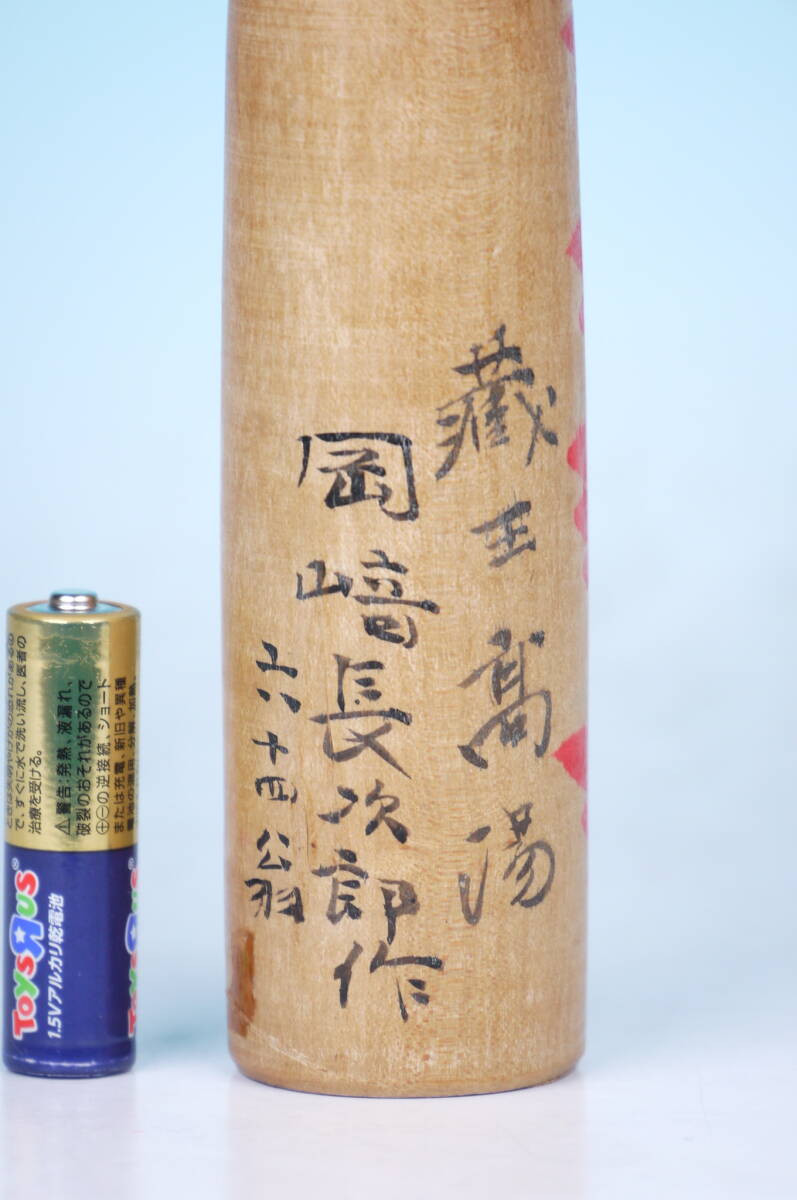 藏王高湯
岡﨑長次郎作
六十四翁
で、すぐに水で洗い流し、医者の
治療を受ける。
⚠警告:発熱、液漏れ、
破裂のおそれがあるので
⊕⊖の逆接続、ショート
または充電、新旧や異種
Toys R us®
1.5Vアルカリ乾電池